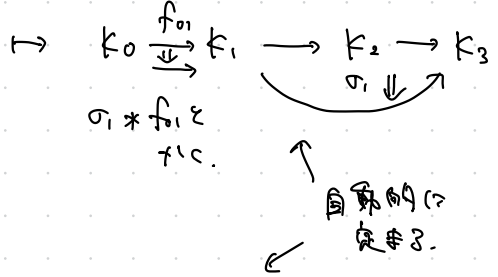 f₀₁
↦ K₀ → K₁ → K₂ → K₃
⇓ σ₁ ⇓
σ₁ * f₀₁ と
かく.
自動的に
定まる.